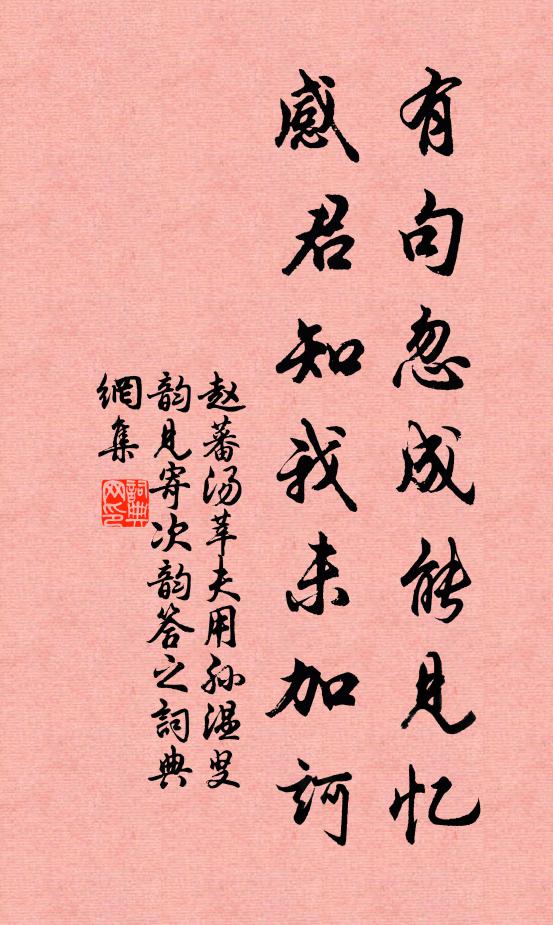 有句忽成能见忆
感君知我未加诃
赵蕃汤莘夫用孙温叟
韵见寄次韵答之詞典
網集
詞典
网印